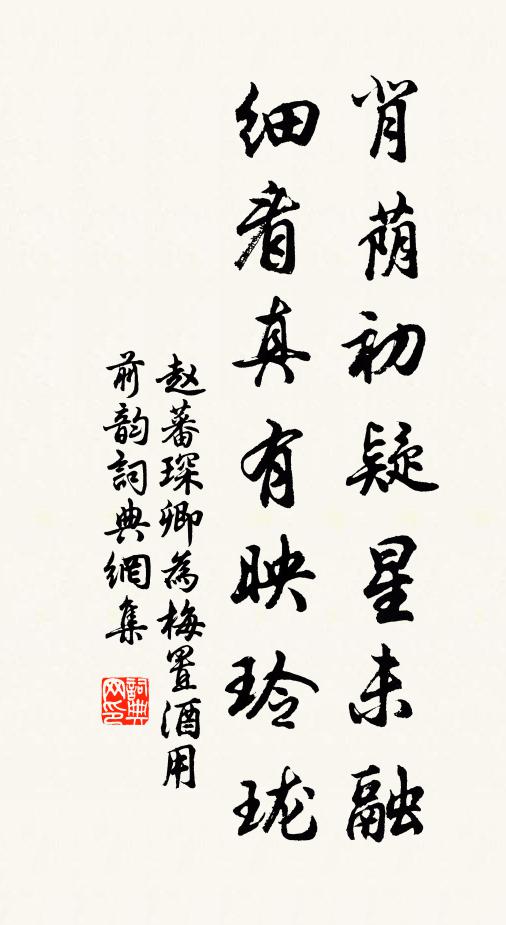 背荫初疑星未融
细看真有映玲珑
赵蕃琛卿为梅置酒用
前韵詞典網集
詞典
网印